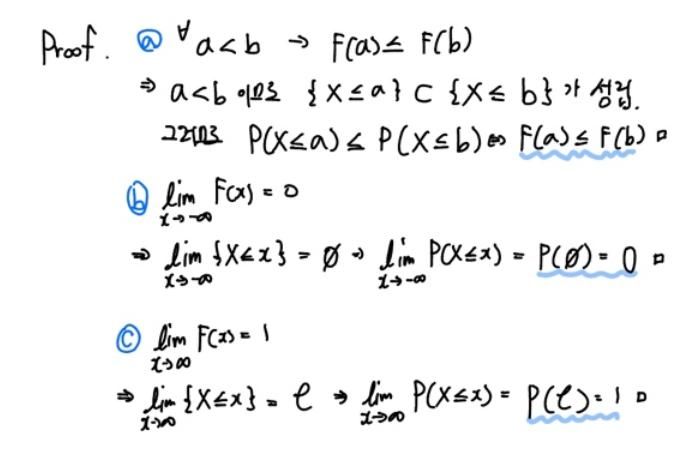 Proof. ⓐ ∀a<b → F(a)≤F(b)
⇒ a<b 이므로 {X≤a} ⊂ {X≤b} 가 성립.
그러므로 P(X≤a) ≤ P(X≤b) ⇔ F(a)≤F(b) □
ⓑ lim_{x→-∞} F(x) = 0
⇒ lim_{x→-∞} {X≤x} = ∅ → lim_{x→-∞} P(X≤x) = P(∅) = 0 □
ⓒ lim_{x→∞} F(x) = 1
⇒ lim_{x→∞} {X≤x} = e → lim_{x→∞} P(X≤x) = P(e) = 1 □